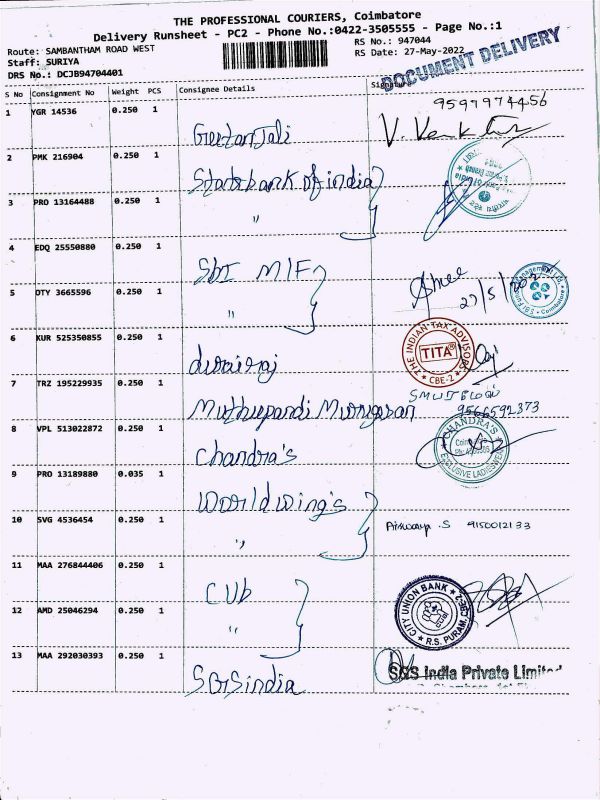 THE PROFESSIONAL COURIERS, Coimbatore
Delivery Runsheet - PC2 - Phone No.:0422-3505555 - Page No.:1
Route: SAMBANTHAM ROAD WEST
RS No.: 947044
Staff: SURIYA
RS Date: 27-May-2022
DRS No.: DCJB94704401
DOCUMENT DELIVERY
S No Consignment No Weight PCS Consignee Details
1 YGR 14536 0.250 1 Geetanjali 9597974456
2 PMK 216904 0.250 1 State bank of india
3 PRO 13164488 0.250 1 "
4 EDQ 25550880 0.250 1 SBI M/F
5 OTY 3665596 0.250 1 " 27/5/2022
6 KUR 525350855 0.250 1 durairaj
THE INDIAN TAX ADVISORS TITA CBE-2
7 TRZ 195229935 0.250 1 Muthupandi Murugasan 9566592373
8 VPL 513022872 0.250 1 Chandra's
CHANDRA'S EXCLUSIVE LADIESWEAR
9 PRO 13189880 0.035 1 World wing's
10 SVG 4536454 0.250 1 " Aiswarya .S 9150012133
11 MAA 276844406 0.250 1 CUb
CITY UNION BANK CUB R.S. PURAM, CBE-2
12 AMD 25046294 0.250 1 "
13 MAA 292030393 0.250 1 SGS india
SGS India Private Limited